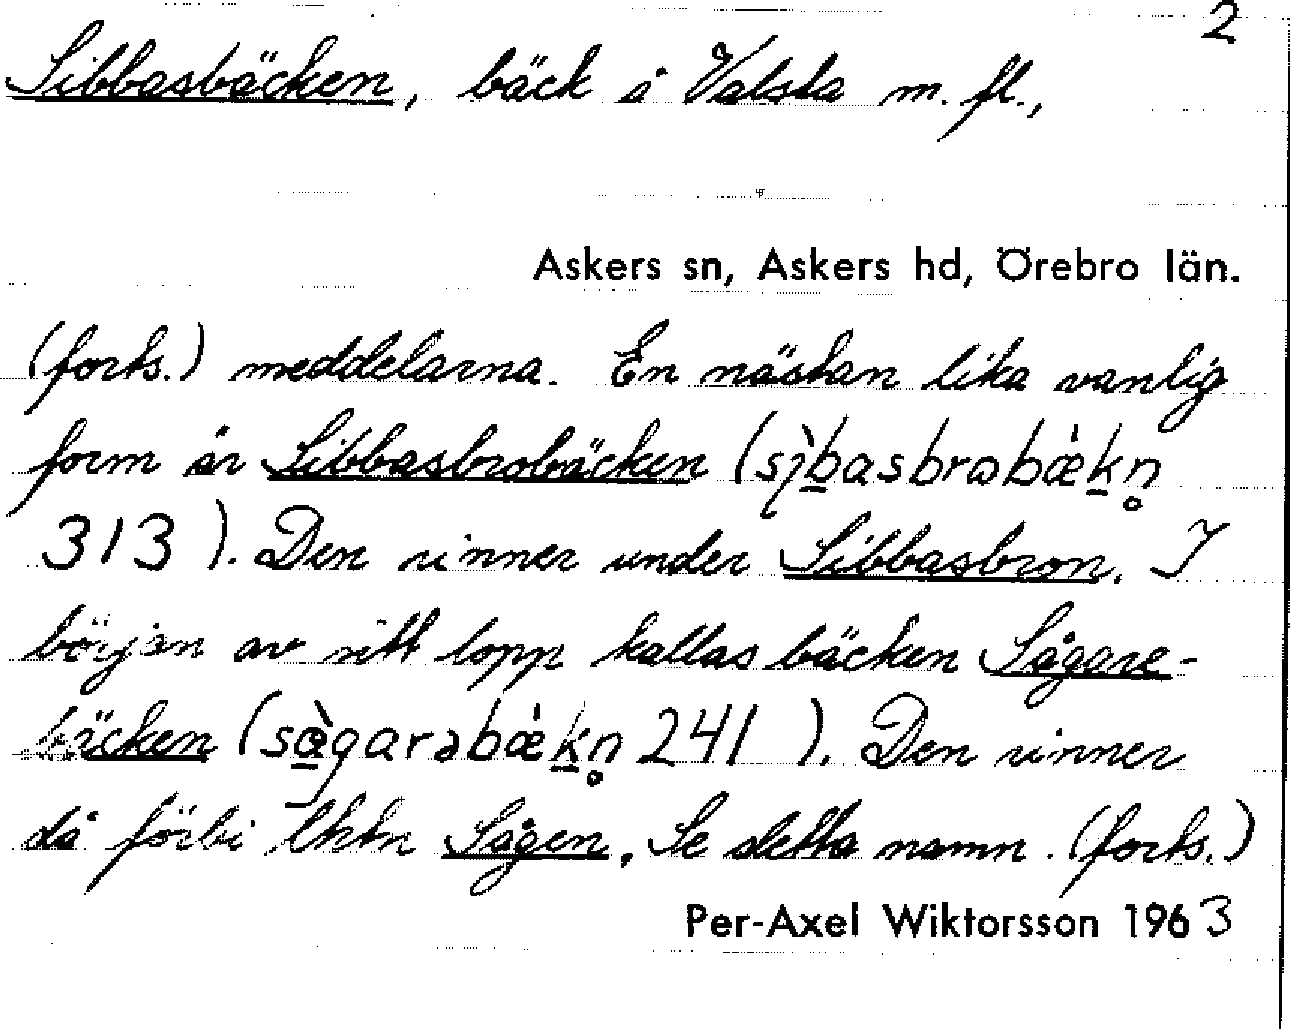 2
Sibbasbäcken, bäck i Valsta m. fl.,
Askers sn, Askers hd, Örebro län.
(forts.) meddelarna. En nästan lika vanlig
form är Sibbasbrobäcken (
313 ). Den rinner under Sibbasbron. I
början av sitt lopp kallas bäcken Sågare-
bäcken ( 241 ). Den rinner
då förbi lhtn Sågen. Se detta namn. (forts.)
Per-Axel Wiktorsson 1963